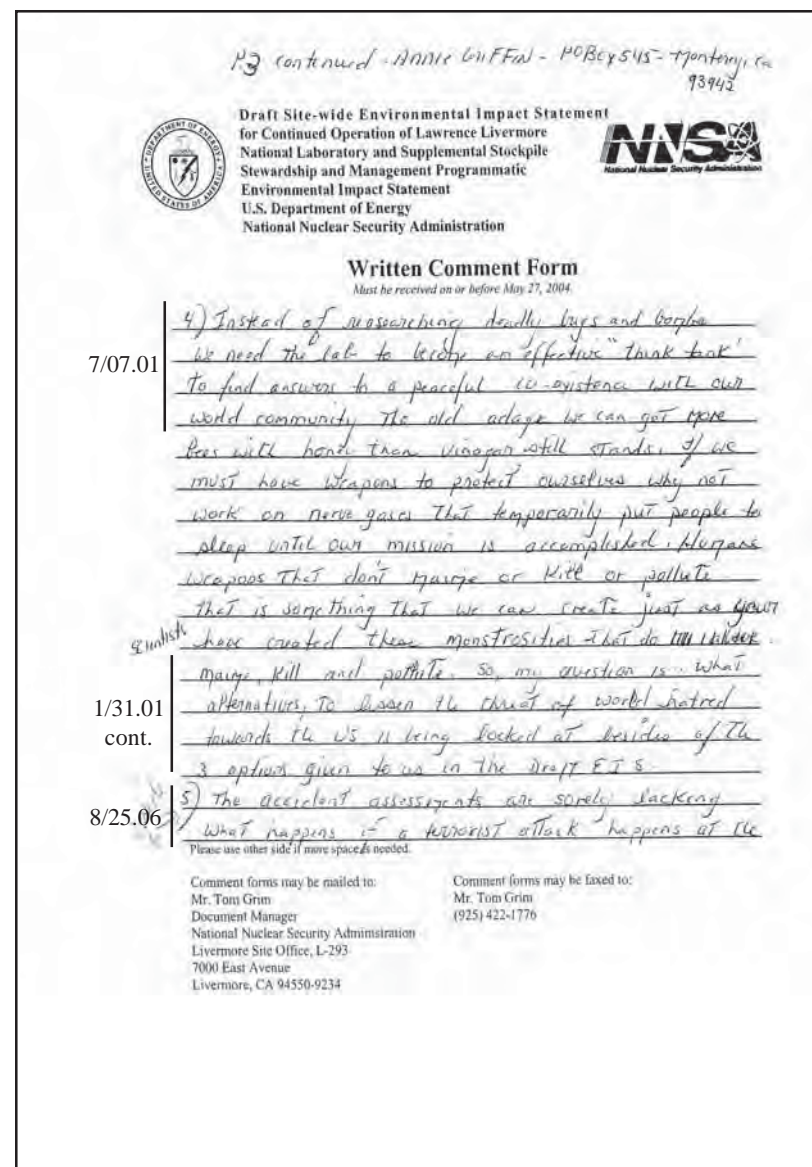 P3 continued - Annie Griffin - POBox 545 - Monterey, Ca
93942
DEPARTMENT OF ENERGY
UNITED STATES OF AMERICA
Draft Site-wide Environmental Impact Statement
for Continued Operation of Lawrence Livermore
National Laboratory and Supplemental Stockpile
Stewardship and Management Programmatic
Environmental Impact Statement
U.S. Department of Energy
National Nuclear Security Administration
NNSA
National Nuclear Security Administration
Written Comment Form
Must be received on or before May 27, 2004.
7/07.01
4) Instead of researching deadly bugs and bombs
we need the lab to become an effective "think tank"
to find answers to a peaceful co-existence with our
world community The old adage we can get more
bees with honey than vinegar still stands. If we
must have weapons to protect ourselves why not
work on nerve gases that temporarily put people to
sleep until our mission is accomplished. Humane
weapons that don't maime or kill or pollute
that is something that we can create just as your
scientists have created these monstrosities that do
maime, kill and pollute. So, my question is.. What
1/31.01
cont.
alternatives, to lessen the threat of world hatred
towards the US is being looked at besides of the
3 options given to us in the Draft EIS
8/25.06
5) The accident assessments are sorely lacking
What happens if a terrorist attack happens at the
Please use other side if more space is needed.
Comment forms may be mailed to:
Mr. Tom Grim
Document Manager
National Nuclear Security Administration
Livermore Site Office, L-293
7000 East Avenue
Livermore, CA 94550-9234
Comment forms may be faxed to:
Mr. Tom Grim
(925) 422-1776